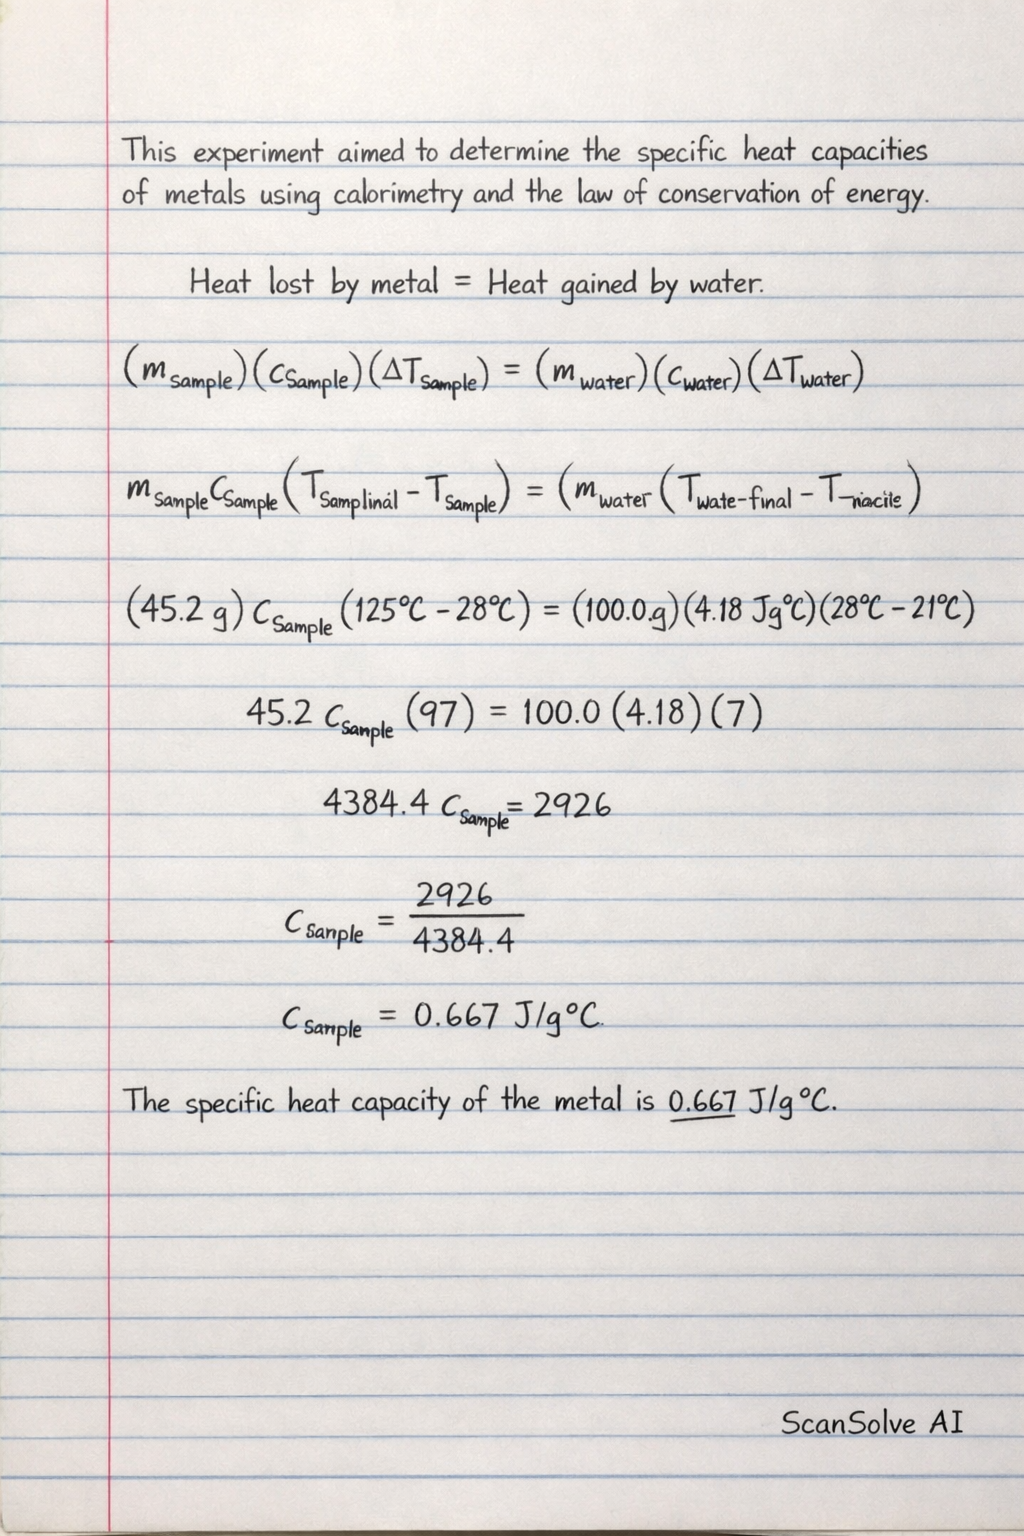 This experiment aimed to determine the specific heat capacities
of metals using calorimetry and the law of conservation of energy.
Heat lost by metal = Heat gained by water.
(m_sample)(c_Sample)(ΔT_Sample) = (m_water)(c_water)(ΔT_water)
m_Sample c_Sample (T_Samplinal - T_Sample) = (m_water (T_wate-final - T_)
(45.2 g) C_Sample (125°C - 28°C) = (100.0.g)(4.18 Jg°C)(28°C - 21°C)
45.2 C_Sanple (97) = 100.0 (4.18) (7)
4384.4 C_Sample = 2926
C_Sanple = 2926
4384.4
C_Sanple = 0.667 J/g°C.
The specific heat capacity of the metal is 0.667 J/g°C.
ScanSolve AI